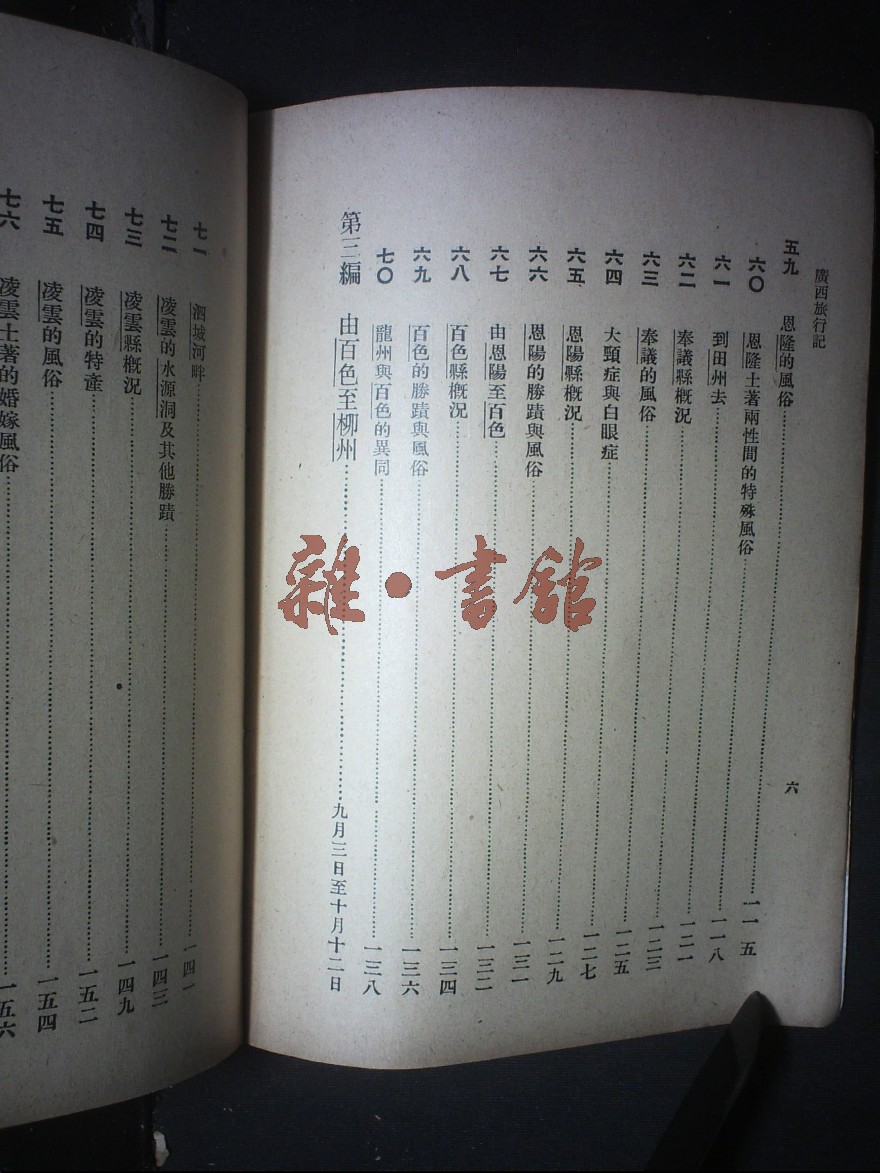 廣西旅行記 六
五九 恩隆的風俗 一一五
六〇 恩隆土著兩性間的特殊風俗 一一八
六一 到田州去 一二一
六二 奉議縣概況 一二三
六三 奉議的風俗 一二五
六四 大頸症與白眼症 一二七
六五 恩陽縣概況 一二九
六六 恩陽的勝蹟與風俗 一三一
六七 由恩陽至百色 一三二
六八 百色縣概況 一三四
六九 百色的勝蹟與風俗 一三六
七〇 龍州與百色的異同 一三八
第三編 由百色至柳州 九月三日至十月十二日
七一 泗城河畔 一四一
七二 凌雲的水源洞及其他勝蹟 一四三
七三 凌雲縣概況 一四九
七四 凌雲的特產 一五二
七五 凌雲的風俗 一五四
七六 凌雲土著的婚嫁風俗 一五六
雜·書館